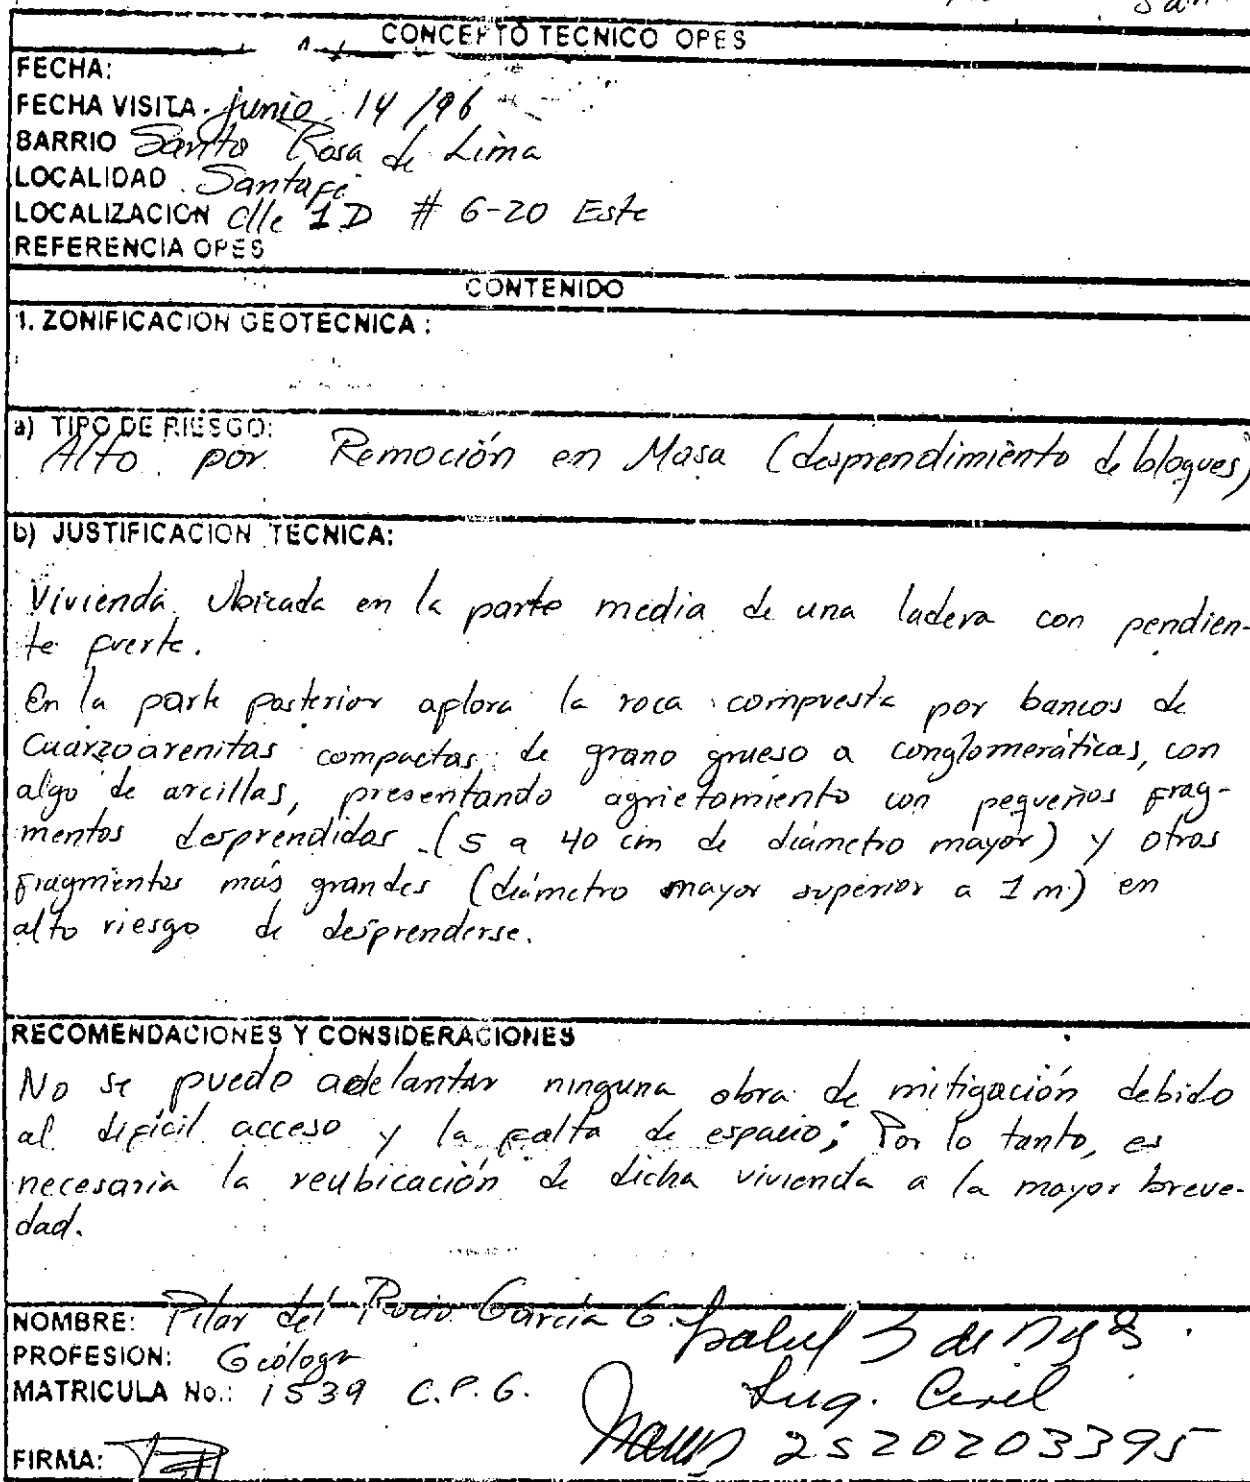 San
CONCEPTO TECNICO OPES
FECHA:
FECHA VISITA junio 14/96
BARRIO Santa Rosa de Lima
LOCALIDAD Santafé
LOCALIZACION Clle 1D # 6-20 Este
REFERENCIA OPES
CONTENIDO
1. ZONIFICACION GEOTECNICA :
a) TIPO DE RIESGO:
Alto por Remoción en Masa (desprendimiento de bloques)
b) JUSTIFICACION TECNICA:
Vivienda Ubicada en la parte media de una ladera con pendien-
te fuerte.
En la parte posterior aflora la roca compuesta por bancos de
Cuarzoarenitas compactas de grano grueso a conglomeráticas, con
algo de arcillas, presentando agrietamiento con pequeños frag-
mentos desprendidos (5 a 40 cm de diámetro mayor) y otros
fragmentos más grandes (diámetro mayor superior a 1 m) en
alto riesgo de desprenderse.
RECOMENDACIONES Y CONSIDERACIONES
No se puede adelantar ninguna obra de mitigación debido
al difícil acceso y la falta de espacio; Por lo tanto, es
necesaria la reubicación de dicha vivienda a la mayor breve-
dad.
NOMBRE: Pilar del Rocío García G.
PROFESION: Geóloga
MATRICULA No.: 1539 C.P.G.
FIRMA:
Ing. Civil
2520203395